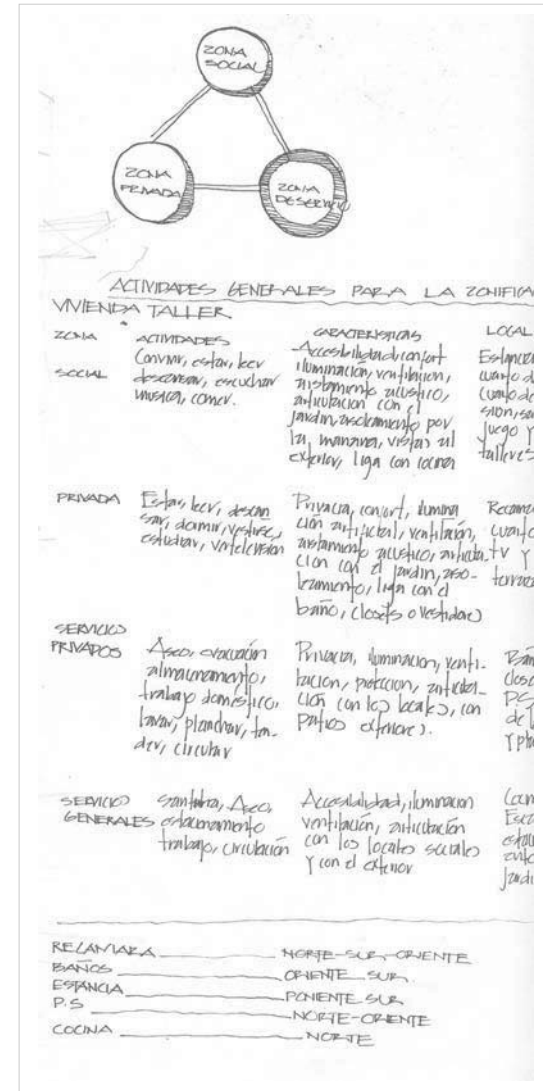 ZONA
SOCIAL
ZONA
PRIVADA
ZONA
DE SERVICIO
ACTIVIDADES GENERALES PARA LA ZONIFICA
VIVIENDA TALLER
ZONA
SOCIAL
ACTIVIDADES
Convivir, estar, leer
descansar, escuchar
musica, comer.
CARACTERISTICAS
Accesibilidad, confort
iluminación, ventilacion,
aislamiento acustico,
articulacion con el
jardin, asoleamiento por
la mañana, vistas al
exterior, liga con cocina
LOCAL
Estancia
cuarto d
cuarto de
sion, sa
juego y
talleres
PRIVADA
Estar, leer, descan
sar, dormir, vestirse,
estudiar, ver television
Privacia, confort, ilumina
ción artificial, ventilación,
aislamiento acustico, articula-
cion con el jardin, aso-
leamiento, liga con el
baño, closets o vestidores
Recama
cuarto
tv y
terraza
SERVICIOS
PRIVADOS
Aseo, evacuación
almacenamiento,
trabajo doméstico,
lavar, planchar, ten-
der, circular
Privacia, iluminacion, venti-
lacion, proteccion, articula-
ción con los locales, con
patios exteriores.
Bañ
close
P.S
de l
y pla
SERVICIOS
GENERALES
Aseo,
estacionamiento
trabajo, circulación
Accesibilidad, iluminacion
ventilación, articulación
con los locales sociales
y con el exterior
Cocin
Esca
estac
jardi
RECAMARA NORTE-SUR-ORIENTE
BAÑOS ORIENTE SUR
ESTANCIA PONIENTE SUR
P.S NORTE-ORIENTE
COCINA NORTE